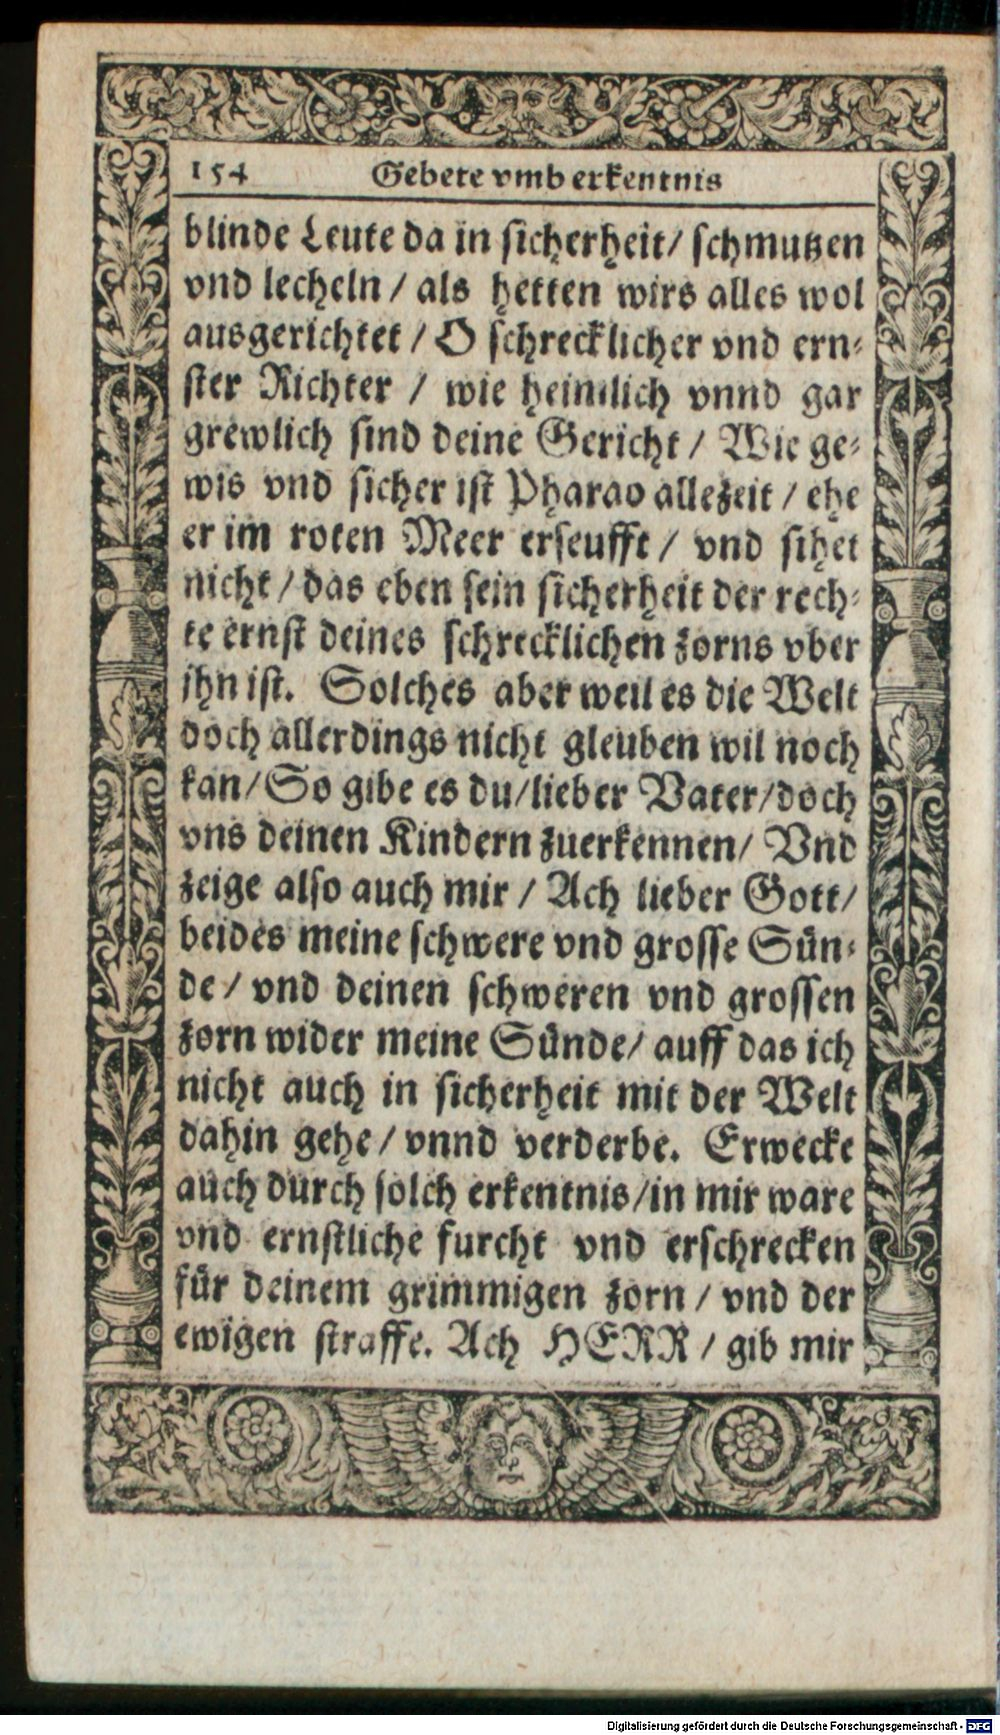 154 Gebete vmb erkentnis
blinde Leute da in sicherheit/ schmutzen
vnd lecheln / als hetten wirs alles wol
ausgerichtet / O schrecklicher vnd ern-
ster Richter / wie heimlich vnnd gar
grewlich sind deine Gericht / Wie ge-
wis vnd sicher ist Pharao allezeit / ehe
er im roten Meer erseufft / vnd sihet
nicht / das eben sein sicherheit der rech-
te ernst deines schrecklichen zorns vber
jhn ist. Solches aber weil es die Welt
doch allerdings nicht gleuben wil noch
kan/ So gibe es du/ lieber Vater/ doch
vns deinen Kindern zuerkennen/ Vnd
zeige also auch mir / Ach lieber Gott/
beides meine schwere vnd grosse Sün-
de / vnd deinen schweren vnd grossen
zorn wider meine Sünde/ auff das ich
nicht auch in sicherheit mit der Welt
dahin gehe / vnnd verderbe. Erwecke
auch durch solch erkentnis/ in mir ware
vnd ernstliche furcht vnd erschrecken
für deinem grimmigen zorn / vnd der
ewigen straffe. Ach HERR / gib mir
Digitalisierung gefördert durch die Deutsche Forschungsgemeinschaft - DFG